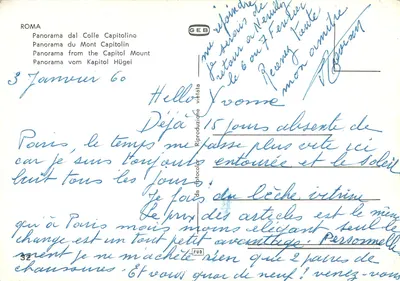 ROMA
Panorama dal Colle Capitolino
Panorama du Mont Capitolin
Panorama from the Capitol Mount
Panorama vom Kapitol Hügel
GEB
3 Janvier 60
Hello Yvonne
Déjà 15 jours absente de
Paris, le temps me passe plus vite ici
car je suis toujours entourée et le soleil
luit tous les jours.
Je fais du lèche vitrine
Le prix des articles est le même
qu'à Paris mais moins élégant seul le
change est un tout petit avantage. Personnelle
ment je ne m'achète rien que 2 paires de
chaussures. Et vous quoi de neuf! venez-vous
me rejoindre
je serais de
retour à
le 6 ou 7 février
Recevez toute
mon amitié
Riproduzione vietata
32